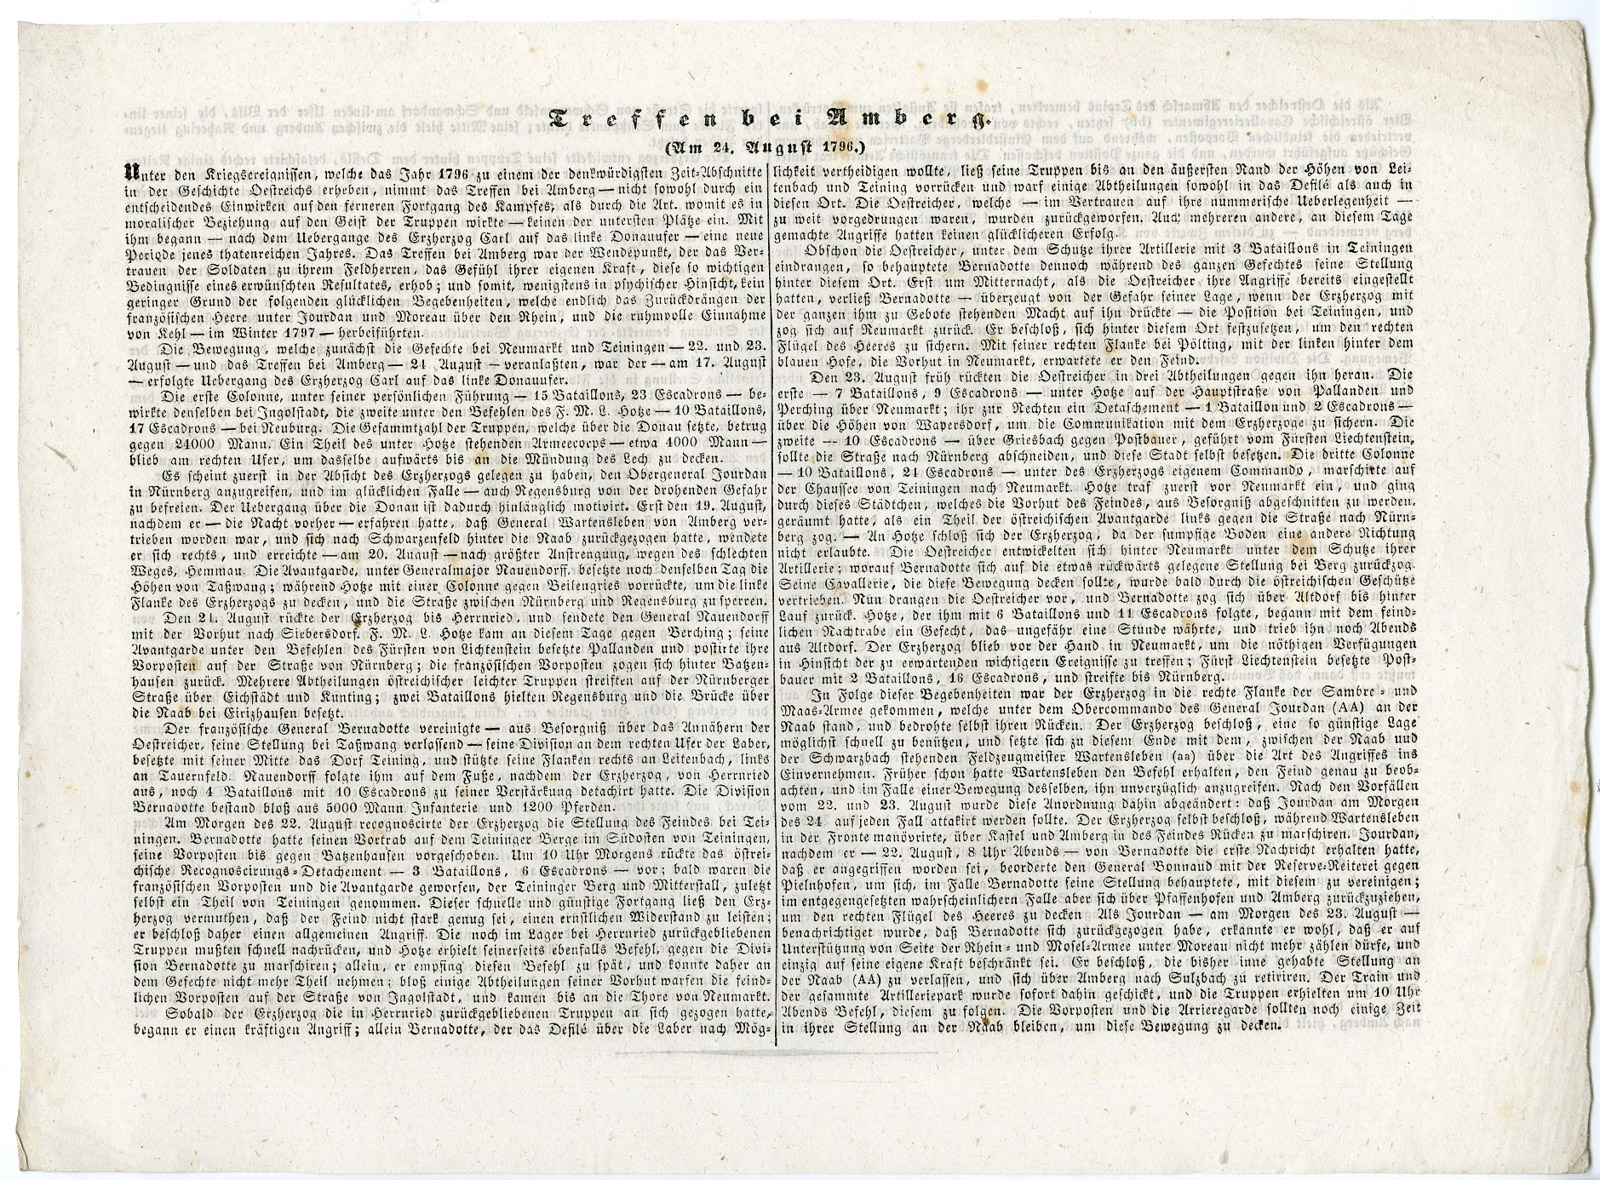 Treffen bei Amberg.
(Am 24. August 1796.)
Unter den Kriegsereignissen, welche das Jahr 1796 zu einem der denkwürdigsten Zeit-Abschnitte
in der Geschichte Oestreichs erheben, nimmt das Treffen bei Amberg — nicht sowohl durch ein
entscheidendes Einwirken auf den ferneren Fortgang des Kampfes, als durch die Art, womit es in
moralischer Beziehung auf den Geist der Truppen wirkte — keinen der untersten Plätze ein. Mit
ihm begann — nach dem Uebergange des Erzherzog Carl auf das linke Donauufer — eine neue
Periode jenes thatenreichen Jahres. Das Treffen bei Amberg war der Wendepunkt, der das Ver-
trauen der Soldaten zu ihrem Feldherren, das Gefühl ihrer eigenen Kraft, diese so wichtigen
Bedingnisse eines erwünschten Resultates, erhob; und somit, wenigstens in physischer Hinsicht, kein
geringer Grund der folgenden glücklichen Begebenheiten, welche endlich das Zurückdrängen der
französischen Heere unter Jourdan und Moreau über den Rhein, und die ruhmvolle Einnahme
von Kehl — im Winter 1797 — herbeiführten.
Die Bewegung, welche zunächst die Gefechte bei Neumarkt und Teiningen — 22. und 23.
August — und das Treffen bei Amberg — 24 August — veranlaßten, war der — am 17. August
— erfolgte Uebergang des Erzherzog Carl auf das linke Donauufer.
Die erste Colonne, unter seiner persönlichen Führung — 15 Bataillons, 23 Escadrons — be-
wirkte denselben bei Ingolstadt, die zweite unter den Befehlen des F. M. L. Hotze — 10 Bataillons,
17 Escadrons — bei Neuburg. Die Gesammtzahl der Truppen, welche über die Donau setzte, betrug
gegen 24000 Mann. Ein Theil des unter Hotze stehenden Armeecorps — etwa 4000 Mann —
blieb am rechten Ufer, um dasselbe aufwärts bis an die Mündung des Lech zu decken.
Es scheint zuerst in der Absicht des Erzherzogs gelegen zu haben, den Obergeneral Jourdan
in Nürnberg anzugreifen, und im glücklichen Falle — auch Regensburg von der drohenden Gefahr
zu befreien. Der Uebergang über die Donau ist dadurch hinlänglich motivirt. Erst den 19. August,
nachdem er — die Nacht vorher — erfahren hatte, daß General Wartensleben von Amberg ver-
trieben worden war, und sich nach Schwarzenfeld hinter die Naab zurückgezogen hatte, wendete
er sich rechts, und erreichte — am 20. August — nach größter Anstrengung, wegen des schlechten
Weges, Hemmau. Die Avantgarde, unter Generalmajor Nauendorff, besetzte noch denselben Tag die
Höhen von Taßwang; während Hotze mit einer Colonne gegen Beilengries vorrückte, um die linke
Flanke des Erzherzogs zu decken, und die Straße zwischen Nürnberg und Regensburg zu sperren.
Den 21. August rückte der Erzherzog bis Herrnried, und sendete den General Nauendorff
mit der Vorhut nach Siebersdorf. F. M. L. Hotze kam an diesem Tage gegen Berching; seine
Avantgarde unter den Befehlen des Fürsten von Lichtenstein besetzte Pallanden und postirte ihre
Vorposten auf der Straße von Nürnberg; die französischen Vorposten zogen sich hinter Batzen-
hausen zurück. Mehrere Abtheilungen östreichischer leichter Truppen streiften auf der Nürnberger
Straße über Eichstädt und Kunting; zwei Bataillons hielten Regensburg und die Brücke über
die Naab bei Eirizhausen besetzt.
Der französische General Bernadotte vereinigte — aus Besorgniß über das Annähern der
Oestreicher, seine Stellung bei Taßwang verlassend — seine Division an dem rechten Ufer der Laber,
besetzte mit seiner Mitte das Dorf Teining, und stützte seine Flanken rechts an Leitenbach, links
an Tauernfeld. Nauendorff folgte ihm auf dem Fuße, nachdem der Erzherzog, von Herrnried
aus, noch 4 Bataillons mit 10 Escadrons zu seiner Verstärkung detachirt hatte. Die Division
Bernadotte bestand bloß aus 5000 Mann Infanterie und 1200 Pferden.
Am Morgen des 22. August recognoscirte der Erzherzog die Stellung des Feindes bei Tei-
ningen. Bernadotte hatte seinen Vortrab auf dem Teininger Berge im Südosten von Teiningen,
seine Vorposten bis gegen Batzenhausen vorgeschoben. Um 10 Uhr Morgens rückte das östrei-
chische Recognoscirungs-Detachement — 3 Bataillons, 6 Escadrons — vor; bald waren die
französischen Vorposten und die Avantgarde geworfen, der Teininger Berg und Mitterstall, zuletzt
selbst ein Theil von Teiningen genommen. Dieser schnelle und günstige Fortgang ließ den Erz-
herzog vermuthen, daß der Feind nicht stark genug sei, einen ernstlichen Widerstand zu leisten;
er beschloß daher einen allgemeinen Angriff. Die noch im Lager bei Herrnried zurückgebliebenen
Truppen mußten schnell nachrücken, und Hotze erhielt seinerseits ebenfalls Befehl, gegen die Divi-
sion Bernadotte zu marschiren; allein, er empfing diesen Befehl zu spät, und konnte daher an
dem Gefechte nicht mehr Theil nehmen; bloß einige Abtheilungen seiner Vorhut warfen die feind-
lichen Vorposten auf der Straße von Ingolstadt, und kamen bis an die Thore von Neumarkt.
Sobald der Erzherzog die in Herrnried zurückgebliebenen Truppen an sich gezogen hatte,
begann er einen kräftigen Angriff; allein Bernadotte, der das Defilé über die Laber nach Mög-
lichkeit vertheidigen wollte, ließ seine Truppen bis an den äußersten Rand der Höhen von Lei-
tenbach und Teining vorrücken und warf einige Abtheilungen sowohl in das Defilé als auch in
diesen Ort. Die Oestreicher, welche — im Vertrauen auf ihre nummerische Ueberlegenheit —
zu weit vorgedrungen waren, wurden zurückgeworfen. Auch mehreren andere, an diesem Tage
gemachte Angriffe hatten keinen glücklicheren Erfolg.
Obschon die Oestreicher, unter dem Schutze ihrer Artillerie mit 3 Bataillons in Teiningen
eindrangen, so behauptete Bernadotte dennoch während des ganzen Gefechtes seine Stellung
hinter diesem Ort. Erst um Mitternacht, als die Oestreicher ihre Angriffe bereits eingestellt
hatten, verließ Bernadotte — überzeugt von der Gefahr seiner Lage, wenn der Erzherzog mit
der ganzen ihm zu Gebote stehenden Macht auf ihn drückte — die Position bei Teiningen, und
zog sich auf Neumarkt zurück. Er beschloß, sich hinter diesem Ort festzusetzen, um den rechten
Flügel des Heeres zu sichern. Mit seiner rechten Flanke bei Pölting, mit der linken hinter dem
blauen Hofe, die Vorhut in Neumarkt, erwartete er den Feind.
Den 23. August früh rückten die Oestreicher in drei Abtheilungen gegen ihn heran. Die
erste — 7 Bataillons, 9 Escadrons — unter Hotze auf der Hauptstraße von Pallanden und
Perching über Neumarkt; ihr zur Rechten ein Detaschement — 1 Bataillon und 2 Escadrons —
über die Höhen von Wapersdorf, um die Communikation mit dem Erzherzoge zu sichern. Die
zweite — 10 Escadrons — über Griesbach gegen Postbauer, geführt vom Fürsten Liechtenstein,
sollte die Straße nach Nürnberg abschneiden, und diese Stadt selbst besetzen. Die dritte Colonne
— 10 Bataillons, 24 Escadrons — unter des Erzherzogs eigenem Commando, marschirte auf
der Chaussee von Teiningen nach Neumarkt. Hotze traf zuerst vor Neumarkt ein, und ging
durch dieses Städtchen, welches die Vorhut des Feindes, aus Besorgniß abgeschnitten zu werden,
geräumt hatte, als ein Theil der östreichischen Avantgarde links gegen die Straße nach Nürn-
berg zog. — An Hotze schloß sich der Erzherzog, da der sumpfige Boden eine andere Richtung
nicht erlaubte. Die Oestreicher entwickelten sich hinter Neumarkt unter dem Schutze ihrer
Artillerie; worauf Bernadotte sich auf die etwas rückwärts gelegene Stellung bei Berg zurückzog.
Seine Cavallerie, die diese Bewegung decken sollte, wurde bald durch die östreichischen Geschütze
vertrieben. Nun drangen die Oestreicher vor, und Bernadotte zog sich über Altdorf bis hinter
Lauf zurück. Hotze, der ihm mit 6 Bataillons und 11 Escadrons folgte, begann mit dem feind-
lichen Nachtrabe ein Gefecht, das ungefähr eine Stunde währte, und trieb ihn noch Abends
aus Altdorf. Der Erzherzog blieb vor der Hand in Neumarkt, um die nöthigen Verfügungen
in Hinsicht der zu erwartenden wichtigern Ereignisse zu treffen; Fürst Liechtenstein besetzte Post-
bauer mit 2 Bataillons, 16 Escadrons, und streifte bis Nürnberg.
In Folge dieser Begebenheiten war der Erzherzog in die rechte Flanke der Sambre- und
Maas-Armee gekommen, welche unter dem Obercommando des General Jourdan (AA) an der
Naab stand, und bedrohte selbst ihren Rücken. Der Erzherzog beschloß, eine so günstige Lage
möglichst schnell zu benützen, und setzte sich zu diesem Ende mit dem, zwischen der Naab und
der Schwarzbach stehenden Feldzeugmeister Wartensleben (aa) über die Art des Angriffes ins
Einvernehmen. Früher schon hatte Wartensleben den Befehl erhalten, den Feind genau zu beob-
achten, und im Falle einer Bewegung desselben, ihn unverzüglich anzugreifen. Nach den Vorfällen
vom 22. und 23. August wurde diese Anordnung dahin abgeändert: daß Jourdan am Morgen
des 24 auf jeden Fall attakirt werden sollte. Der Erzherzog selbst beschloß, während Wartensleben
in der Fronte manövrirte, über Kastel und Amberg in des Feindes Rücken zu marschiren. Jourdan,
nachdem er — 22. August, 8 Uhr Abends — von Bernadotte die erste Nachricht erhalten hatte,
daß er angegriffen worden sei, beorderte den General Bonnaud mit der Reserve-Reiterei gegen
Pielnhofen, um sich, im Falle Bernadotte seine Stellung behauptete, mit diesem zu vereinigen;
im entgegengesetzten wahrscheinlichern Falle aber sich über Pfaffenhofen und Amberg zurückzuziehen,
um den rechten Flügel des Heeres zu decken Als Jourdan — am Morgen des 23. August —
benachrichtiget wurde, daß Bernadotte sich zurückgezogen habe, erkannte er wohl, daß er auf
Unterstützung von Seite der Rhein- und Mosel-Armee unter Moreau nicht mehr zählen dürfe, und
einzig auf seine eigene Kraft beschränkt sei. Er beschloß, die bisher inne gehabte Stellung an
der Naab (AA) zu verlassen, und sich über Amberg nach Sulzbach zu retiriren. Der Train und
der gesammte Artilleriepark wurde sofort dahin geschickt, und die Truppen erhielten um 10 Uhr
Abends Befehl, diesem zu folgen. Die Vorposten und die Arrieregarde sollten noch einige Zeit
in ihrer Stellung an der Naab bleiben, um diese Bewegung zu decken.